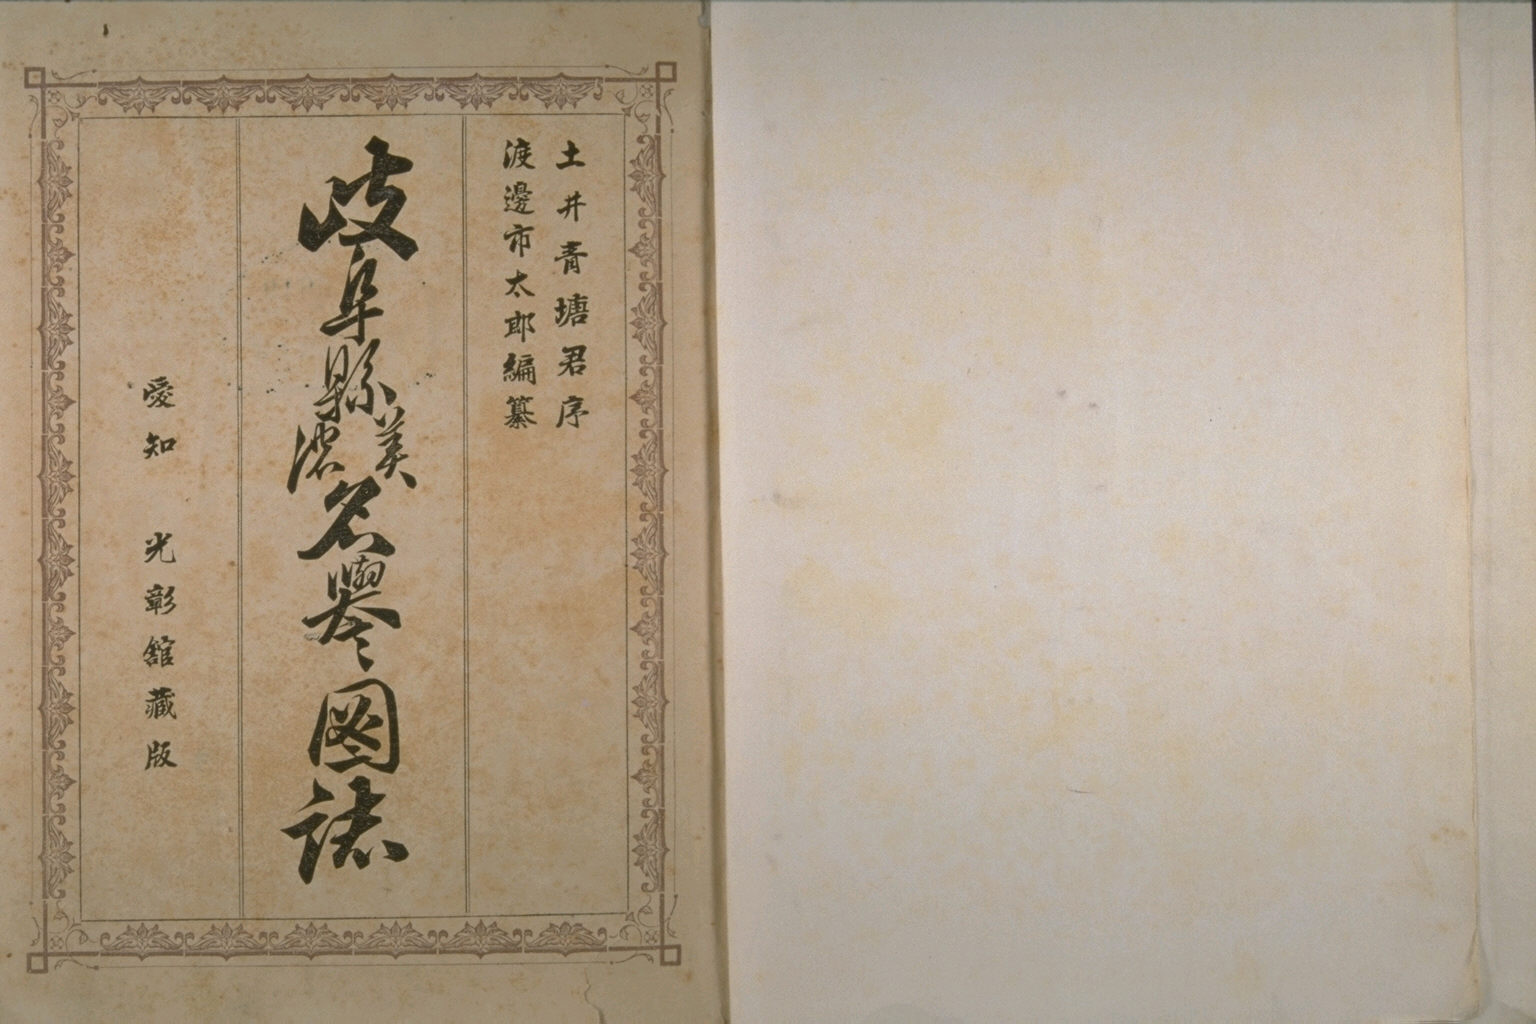 土井青塘君序
渡邊市太郎編纂
岐阜縣美濃名譽図誌
愛知 光彰館藏版